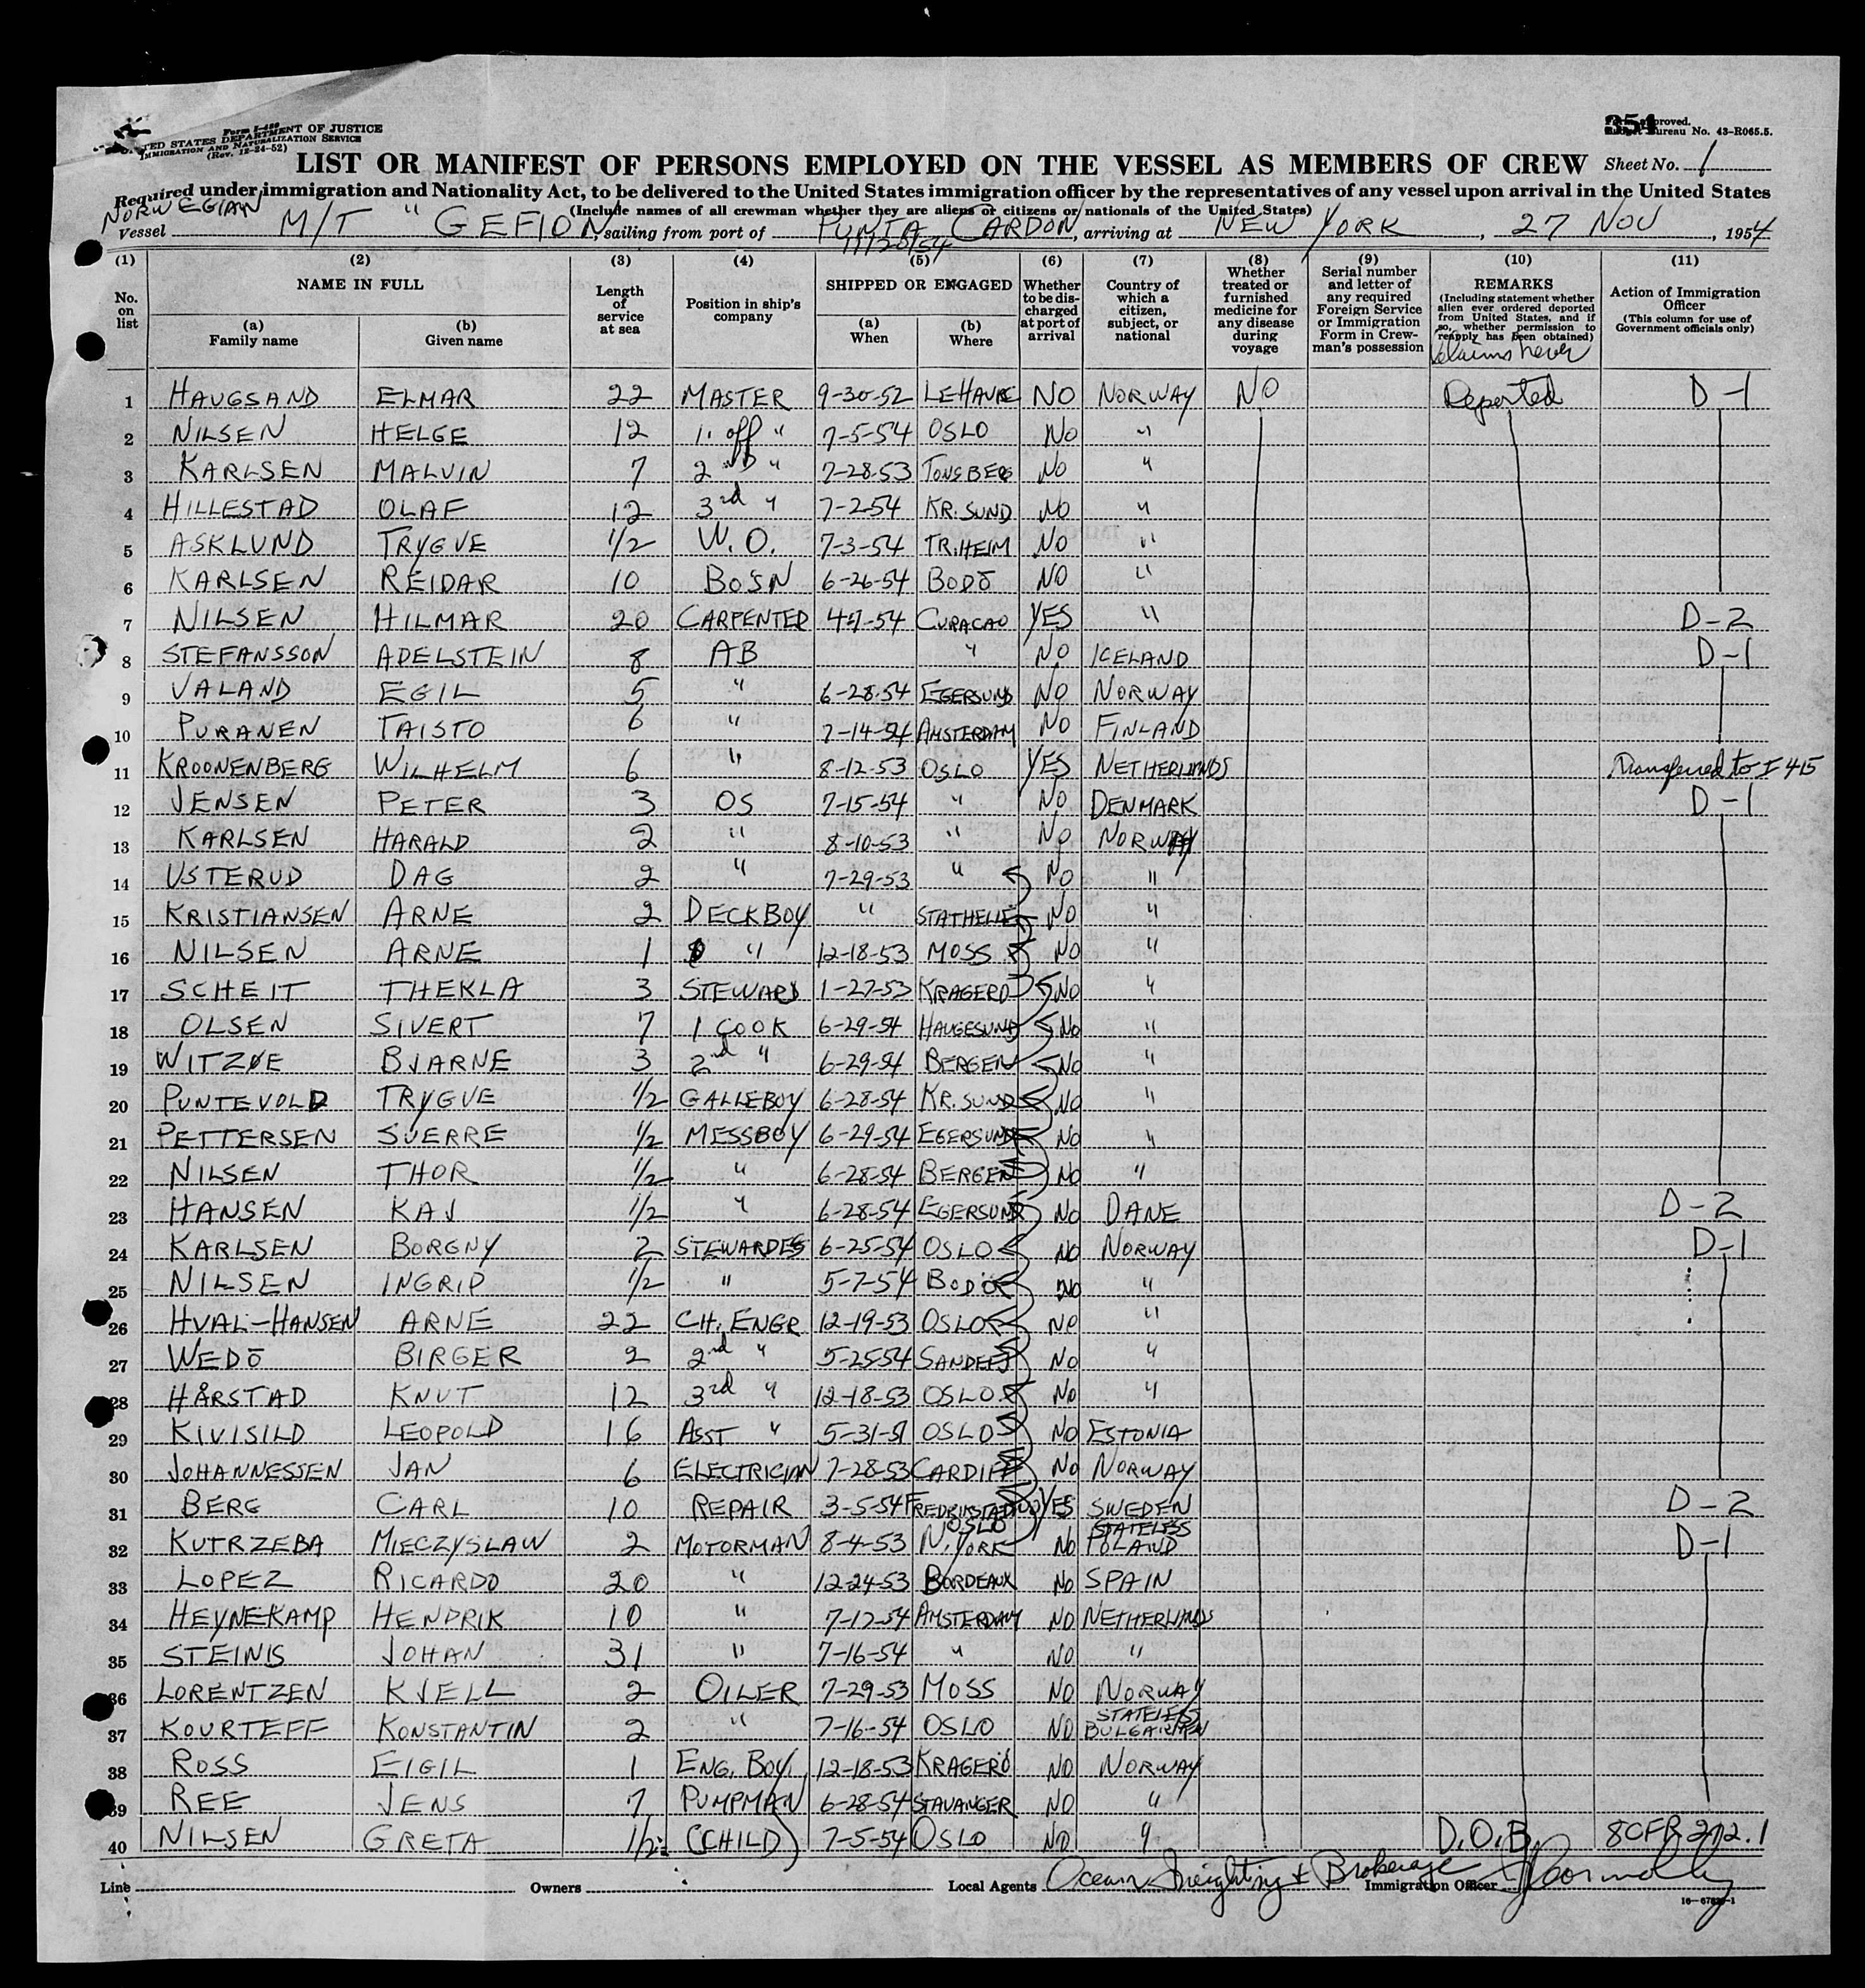 Form I-489
UNITED STATES DEPARTMENT OF JUSTICE
IMMIGRATION AND NATURALIZATION SERVICE
(Rev. 12-24-52)
Form approved.
Budget Bureau No. 43-R065.5.
254
LIST OR MANIFEST OF PERSONS EMPLOYED ON THE VESSEL AS MEMBERS OF CREW Sheet No. 1
Required under immigration and Nationality Act, to be delivered to the United States immigration officer by the representatives of any vessel upon arrival in the United States
(Include names of all crewman whether they are aliens or citizens or nationals of the United States)
NORWEGIAN
Vessel M/T " GEFION, sailing from port of PUNTA CARDON, arriving at NEW YORK, 27 NOV, 1954
11/20/54
(1) No. on list
(2) NAME IN FULL (a) Family name (b) Given name
(3) Length of service at sea
(4) Position in ship's company
(5) SHIPPED OR ENGAGED (a) When (b) Where
(6) Whether to be discharged at port of arrival
(7) Country of which a citizen, subject, or national
(8) Whether treated or furnished medicine for any disease during voyage
(9) Serial number and letter of any required Foreign Service or Immigration Form in Crewman's possession
(10) REMARKS (Including statement whether alien ever ordered deported from United States, and if so, whether permission to reapply has been obtained)
(11) Action of Immigration Officer (This column for use of Government officials only)
Claims never
1 HAUGSAND ELMAR 22 MASTER 9-30-52 LE HAVRE NO NORWAY NO Deported D-1
2 NILSEN HELGE 12 1. off " 7-5-54 OSLO NO "
3 KARLSEN MALVIN 7 2ND " 7-28-53 TONSBERG NO "
4 HILLESTAD OLAF 12 3rd " 7-2-54 KR.SUND NO "
5 ASKLUND TRYGVE 1/2 W.O. 7-3-54 TR.HEIM NO "
6 KARLSEN REIDAR 10 BOSN 6-26-54 BODÖ NO "
7 NILSEN HILMAR 20 CARPENTED 4-1-54 CURACAO YES " D-2
8 STEFANSSON ADELSTEIN 8 AB " NO ICELAND D-1
9 VALAND EGIL 5 " 6-28-54 EGERSUND NO NORWAY
10 PURANEN TAISTO 6 " 7-14-54 AMSTERDAM NO FINLAND
11 KROONENBERG WILHELM 6 " 8-12-53 OSLO YES NETHERLANDS Transferred to I 415
12 JENSEN PETER 3 OS 7-15-54 " NO DENMARK D-1
13 KARLSEN HARALD 2 " 8-10-53 " NO NORWAY
14 USTERUD DAG 2 " 7-29-53 " NO "
15 KRISTIANSEN ARNE 2 DECKBOY " STATHELLE NO "
16 NILSEN ARNE 1 " 12-18-53 MOSS NO "
17 SCHEIT THEKLA 3 STEWARD 1-27-53 KRAGERO NO "
18 OLSEN SIVERT 7 1 COOK 6-29-54 HAUGESUND NO "
19 WITZØE BJARNE 3 2nd " 6-29-54 BERGEN NO "
20 PUNTEVOLD TRYGVE 1/2 GALLEBOY 6-28-54 KR.SUND NO "
21 PETTERSEN SVERRE 1/2 MESSBOY 6-29-54 EGERSUND NO "
22 NILSEN THOR 1/2 " 6-28-54 BERGEN NO "
23 HANSEN KAJ 1/2 " 6-28-54 EGERSUND NO DANE D-2
24 KARLSEN BORGNY 2 STEWARDES 6-25-54 OSLO NO NORWAY D-1
25 NILSEN INGRID 1/2 " 5-7-54 BODÖ NO "
26 HVAL-HANSEN ARNE 22 CH. ENGR 12-19-53 OSLO NO "
27 WEDÖ BIRGER 2 2nd " 5-25-54 SANDEFJ NO "
28 HÅRSTAD KNUT 12 3rd " 12-18-53 OSLO NO "
29 KIVISILD LEOPOLD 16 ASST " 5-31-51 OSLO NO ESTONIA
30 JOHANNESSEN JAN 6 ELECTRICIAN 7-28-53 CARDIFF NO NORWAY
31 BERG CARL 10 REPAIR 3-5-54 FREDRIKSTAD YES SWEDEN D-2
OSLO STATELESS
32 KUTRZEBA MIECZYSLAW 2 MOTORMAN 8-4-53 N.YORK NO POLAND D-1
33 LOPEZ RICARDO 20 " 12-24-53 BORDEAUX NO SPAIN
34 HEYNEKAMP HENDRIK 10 " 7-12-54 AMSTERDAM NO NETHERLANDS
35 STEINIS JOHAN 31 " 7-16-54 " NO "
36 LORENTZEN KJELL 2 OILER 7-29-53 MOSS NO NORWAY
STATELESS
37 KOURTEFF KONSTANTIN 2 " 7-16-54 OSLO NO BULGARIAN
38 ROSS EIGIL 1 ENG. BOY 12-18-53 KRAGERÖ NO NORWAY
39 REE JENS 7 PUMPMAN 6-28-54 STAVANGER NO "
40 NILSEN GRETA 1/2 (CHILD) 7-5-54 OSLO NO " D.O.B. 8CFR 272.1
Line Owners Local Agents Ocean Freighting & Brokerage Immigration Officer